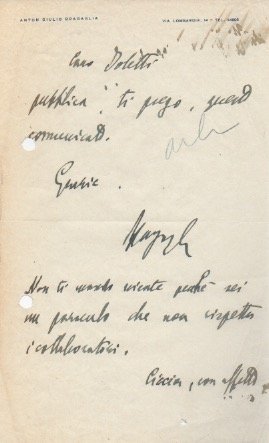 ANTON GIULIO BRAGAGLIA
VIA LOMBARDIA, TEL.
Caro Doletti
pubblica, ti prego, questo
comunicato.
Grazie.
Non ti mando niente perché sei
un che non rispetta
i collaboratori.
Ciccia, con affetto